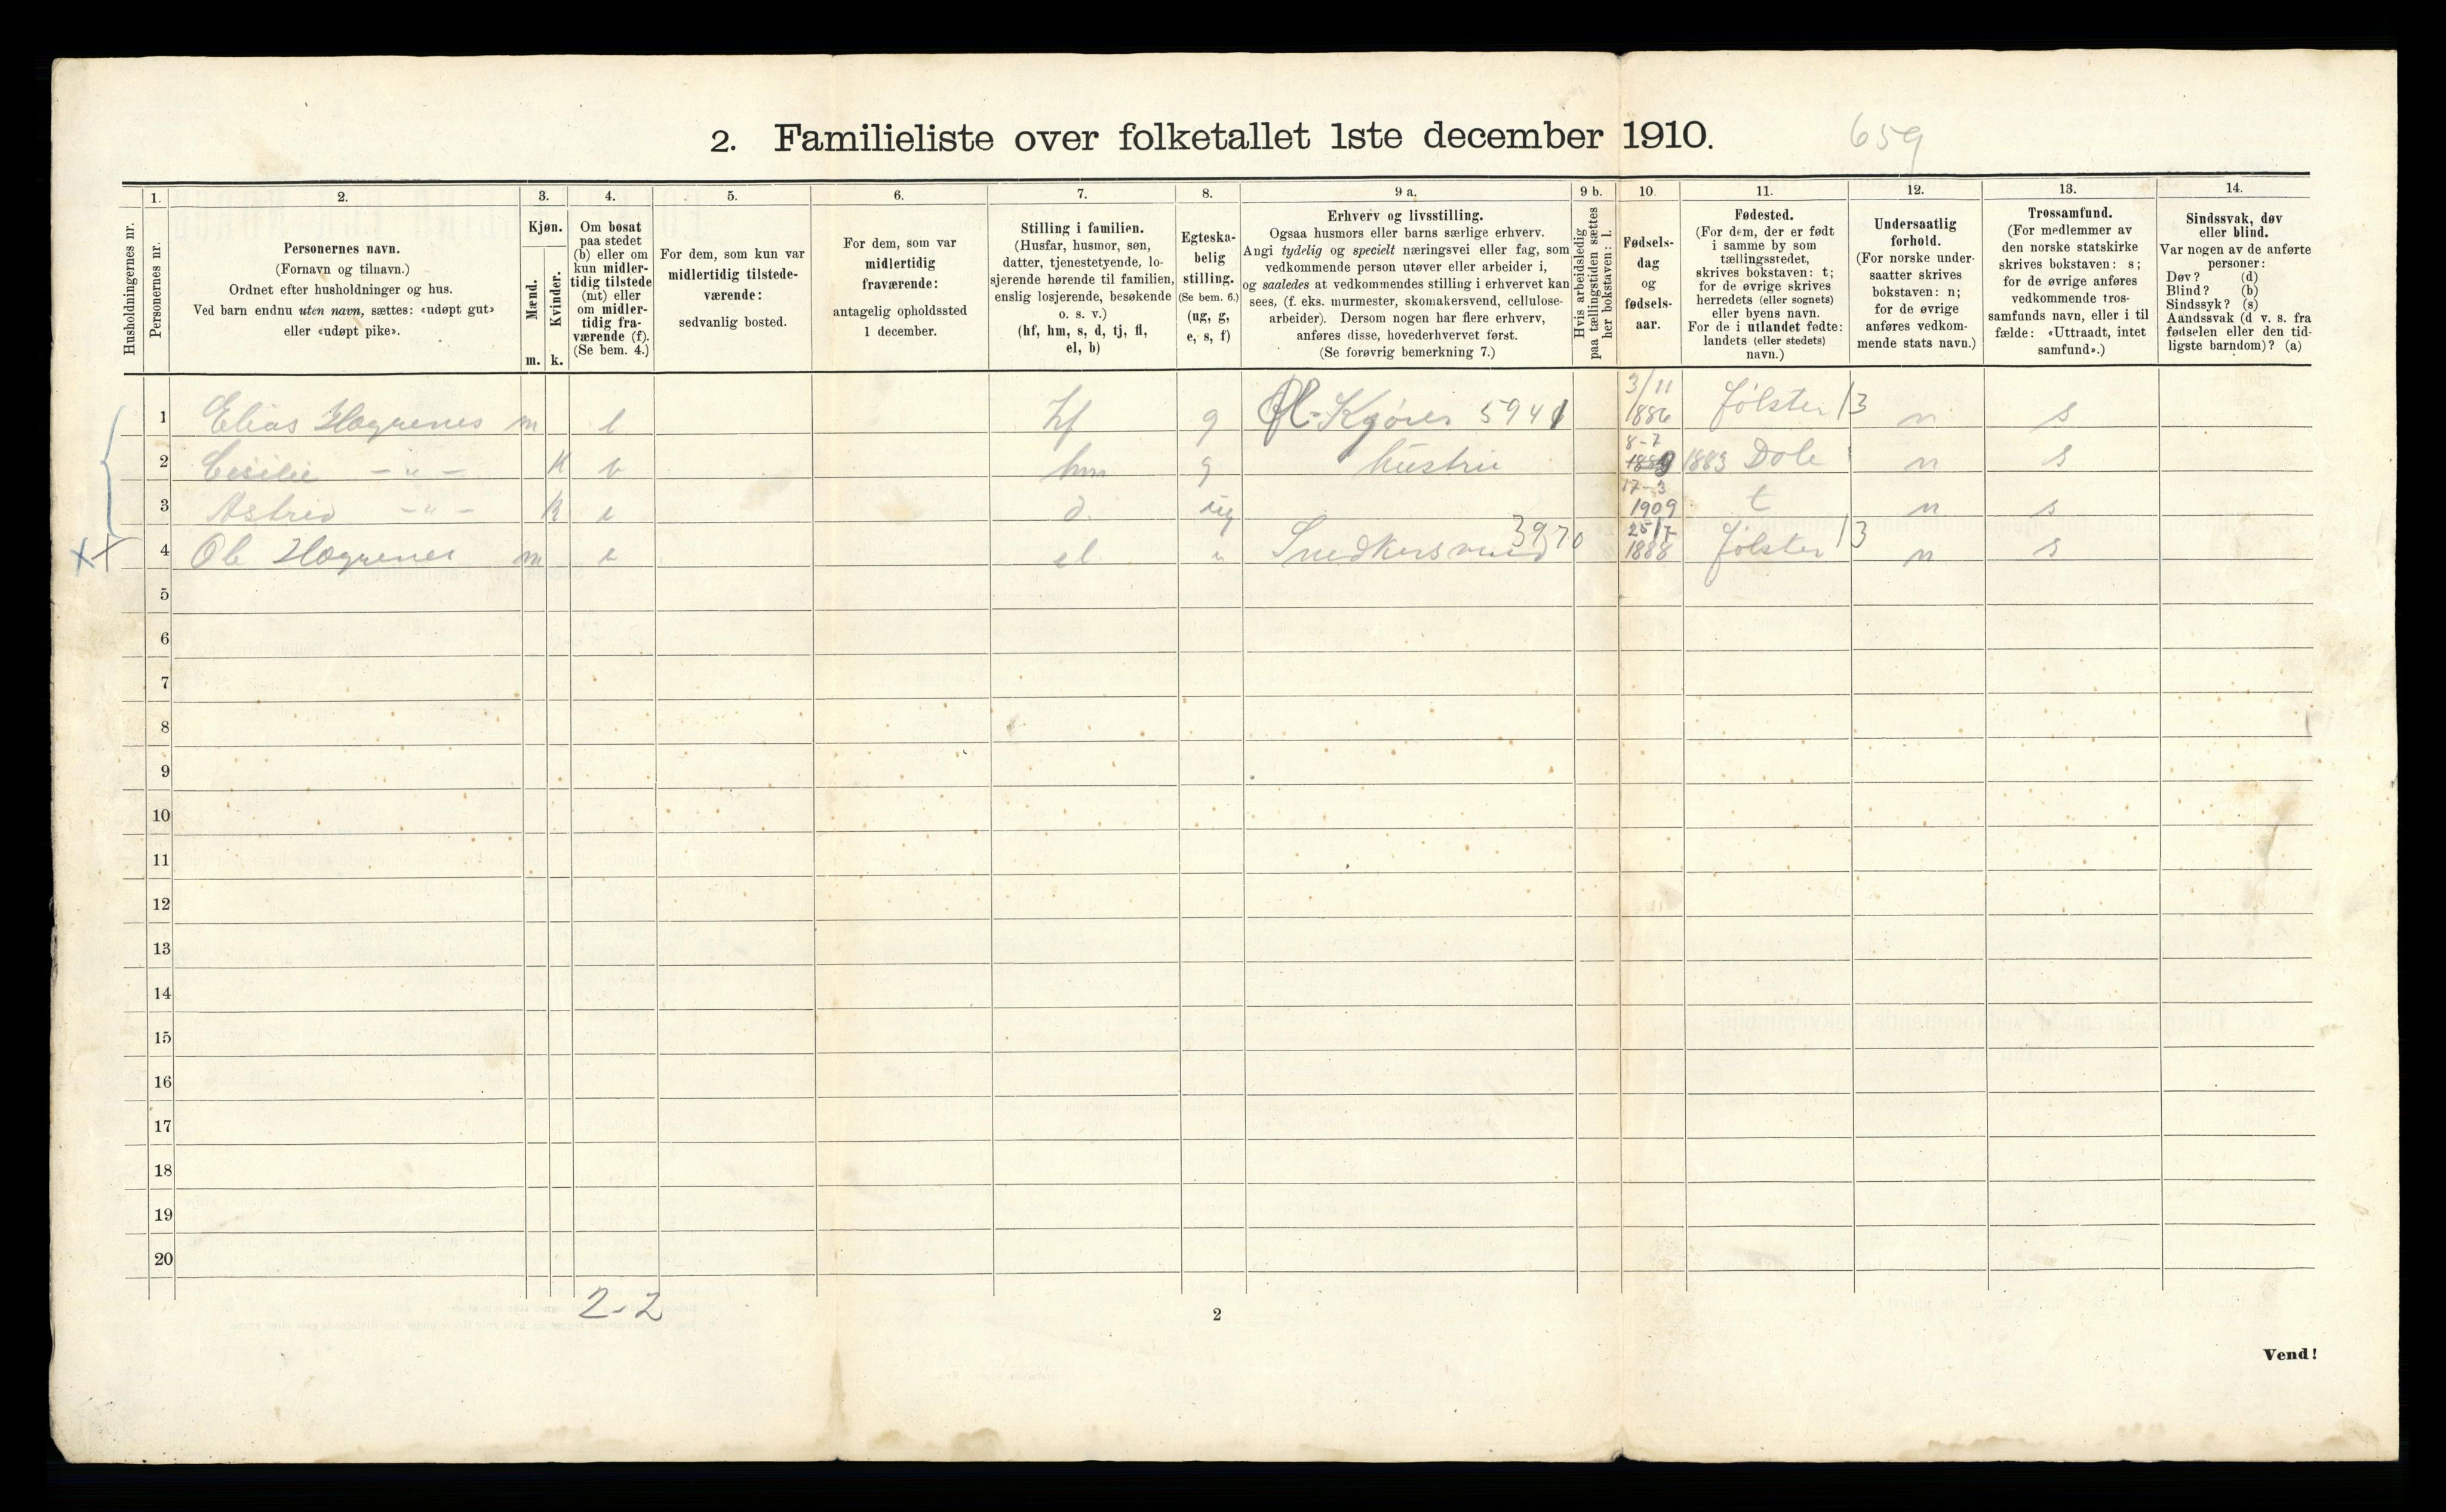 2. Familieliste over folketallet 1ste december 1910.
659
Husholdningernes nr.
1.
Personernes nr.
2.
Personernes navn.
(Fornavn og tilnavn.)
Ordnet efter husholdninger og hus.
Ved barn endnu uten navn, sættes: «udøpt gut»
eller «udøpt pike».
3.
Kjøn.
Mænd.
Kvinder.
m. k.
4.
Om bosat
paa stedet
(b) eller om
kun midler-
tidig tilstede
(mt) eller
om midler-
tidig fra-
værende (f).
(Se bem. 4.)
5.
For dem, som kun var
midlertidig tilstede-
værende:
sedvanlig bosted.
6.
For dem, som var
midlertidig
fraværende:
antagelig opholdssted
1 december.
7.
Stilling i familien.
(Husfar, husmor, søn,
datter, tjenestetyende, lo-
sjerende hørende til familien,
enslig losjerende, besøkende
o. s. v.)
(hf, hm, s, d, tj, fl,
el, b)
8.
Egteska-
belig
stilling.
(Se bem. 6.)
(ug, g,
e, s, f)
9 a.
Erhverv og livsstilling.
Ogsaa husmors eller barns særlige erhverv.
Angi tydelig og specielt næringsvei eller fag, som
vedkommende person utøver eller arbeider i,
og saaledes at vedkommendes stilling i erhvervet kan
sees, (f. eks. murmester, skomakersvend, cellulose-
arbeider). Dersom nogen har flere erhverv,
anføres disse, hovederhvervet først.
(Se forøvrig bemerkning 7.)
9 b.
Hvis arbeidsledig
paa tællingstiden sættes
her bokstaven: l.
10.
Fødsels-
dag
og
fødsels-
aar.
11.
Fødested.
(For dem, der er født
i samme by som
tællingsstedet,
skrives bokstaven: t;
for de øvrige skrives
herredets (eller sognets)
eller byens navn.
For de i utlandet fødte:
landets (eller stedets)
navn.)
12.
Undersaatlig
forhold.
(For norske under-
saatter skrives
bokstaven: n;
for de øvrige
anføres vedkom-
mende stats navn.)
13.
Trossamfund.
(For medlemmer av
den norske statskirke
skrives bokstaven: s;
for de øvrige anføres
vedkommende tros-
samfunds navn, eller i til
fælde: «Uttraadt, intet
samfund».)
14.
Sindssvak, døv
eller blind.
Var nogen av de anførte
personer:
Døv? (d)
Blind? (b)
Sindssyk? (s)
Aandssvak (d v. s. fra
fødselen eller den tid-
ligste barndom)? (a)
1 Elias m b hf g Kjører 5941 3/11 1886 Jølster 13 n s
2 Cesilie -"- K b hm g hustru 8-7 1883 Dole n s
3 Astrid -"- K b d. ug 17-3 1909 t n s
4 Ole m b el u Snedkersvend 3970 25/7 1888 Jølster 13 n s
5
6
7
8
9
10
11
12
13
14
15
16
17
18
19
20
2-2
2
Vend!